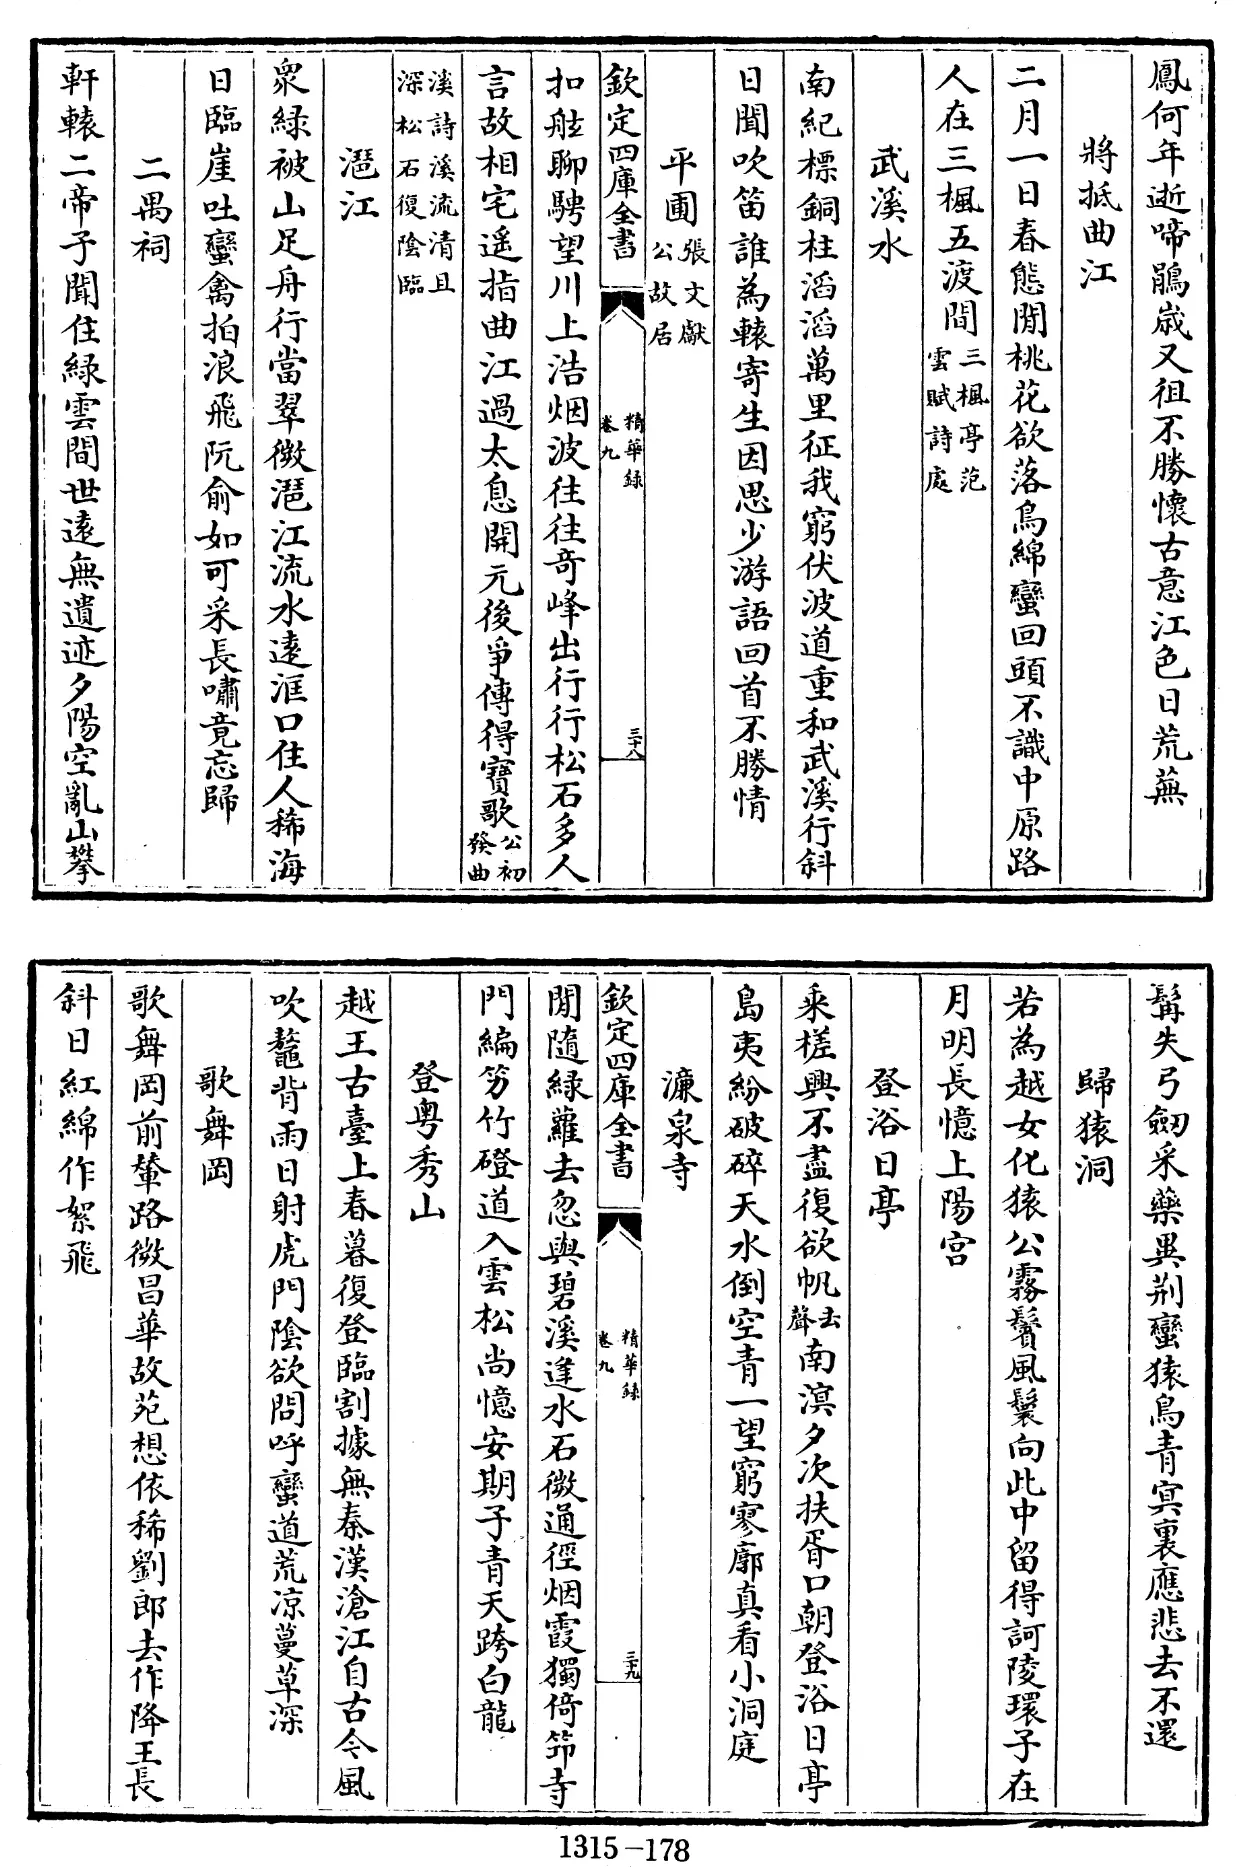 鳳何年逝啼鵑歲又徂不勝懷古意江色日荒蕪
將抵曲江
二月一日春態閒桃花欲落鳥綿蠻回頭不識中原路
人在三楓五渡間三楓亭范雲賦詩處
武溪水
南紀標銅柱滔滔萬里征我窮伏波道重和武溪行斜
日聞吹笛誰為轅寄生因思少游語回首不勝情
平圃張文獻公故居
欽定四庫全書 精華録 卷九 三十八
扣舷聊騁望川上浩烟波往往奇峰出行行松石多人
言故相宅遥指曲江過太息開元後爭傳得寶歌公初發曲
溪詩溪流清且深松石復陰臨
湟江
衆綠被山足舟行當翠微湟江流水遠洭口住人稀海
日臨崖吐蠻禽拍浪飛阮俞如可采長嘯竟忘歸
二禺祠
軒轅二帝子聞住緑雲間世遠無遺迹夕陽空亂山攀
髯失弓劒采藥異荆蠻猿鳥青冥裏應悲去不還
歸猿洞
若為越女化猿公霧鬢風鬟向此中留得訶陵環子在
月明長憶上陽宫
登浴日亭
乘槎興不盡復欲帆去聲南溟夕次扶胥口朝登浴日亭
島夷紛破碎天水倒空青一望窮寥廓真看小洞庭
濂泉寺
欽定四庫全書 精華録 卷九 三十九
閒隨緑蘿去忽與碧溪逢水石微通徑烟霞獨倚笻寺
門編竻竹磴道入雲松尚憶安期子青天跨白龍
登粤秀山
越王古臺上春暮復登臨割據無秦漢滄江自古今風
吹鼇背雨日射虎門陰欲問呼蠻道荒凉蔓草深
歌舞岡
歌舞岡前輦路微昌華故苑想依稀劉郎去作降王長
斜日紅綿作絮飛
1315-178